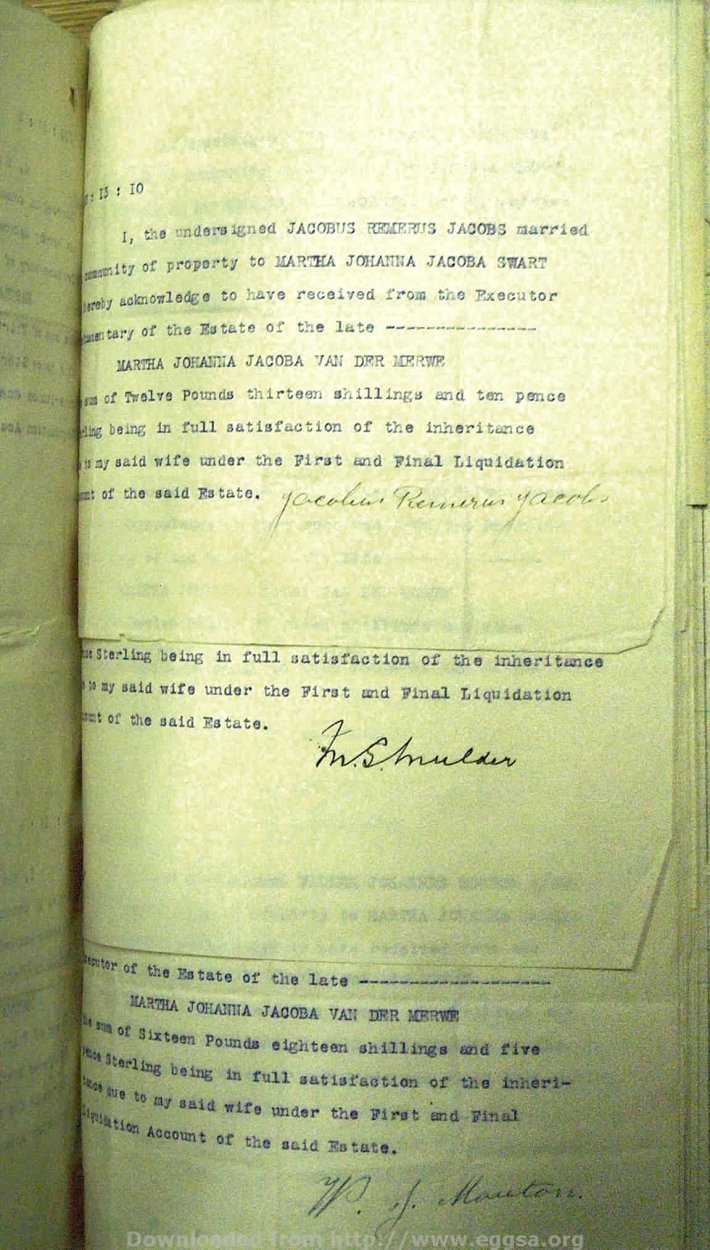 : 13 : 10
I, the undersigned JACOBUS REMERUS JACOBS married
community of property to MARTHA JOHANNA JACOBA SWART
hereby acknowledge to have received from the Executor
tamentary of the Estate of the late ---------------
MARTHA JOHANNA JACOBA VAN DER MERWE
sum of Twelve Pounds thirteen shillings and ten pence
ling being in full satisfaction of the inheritance
to my said wife under the First and Final Liquidation
unt of the said Estate. Jacobus Remerus Jacobs
nce Sterling being in full satisfaction of the inheritance
to my said wife under the First and Final Liquidation
ount of the said Estate.
Mulder
ecutor of the Estate of the late -------------------
MARTHA JOHANNA JACOBA VAN DER MERWE
the sum of Sixteen Pounds eighteen shillings and five
ence Sterling being in full satisfaction of the inheri-
tance due to my said wife under the First and Final
Liquidation Account of the said Estate.
W. J. Mouton.
Downloaded from http://www.eggsa.org